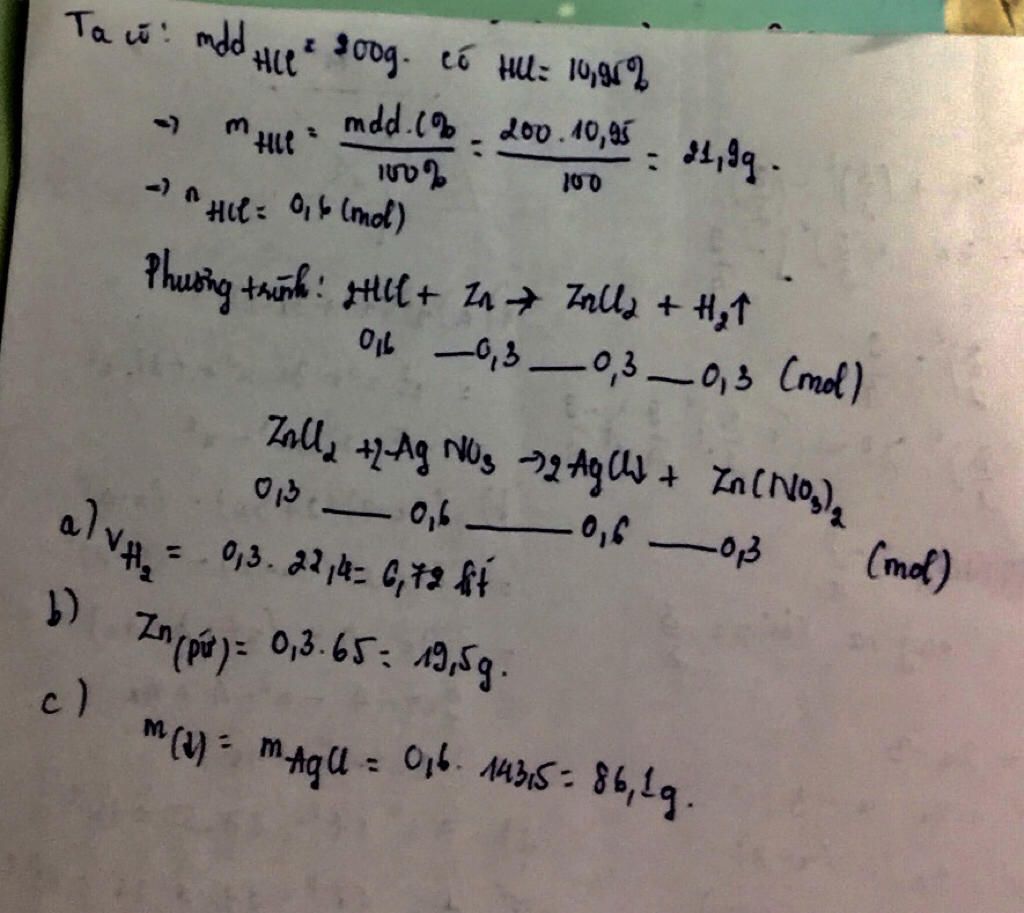 Ta có: mdd HCl = 200g. có HCl = 10,95%
→ m HCl = mdd.C% / 100% = 200.10,95 / 100 = 21,9g.
→ n HCl = 0,6 (mol)
Phương trình: 2HCl + Zn → ZnCl₂ + H₂↑
0,6 — 0,3 — 0,3 — 0,3 (mol)
ZnCl₂ + 2AgNO₃ → 2AgCl↓ + Zn(NO₃)₂
0,3 — 0,6 — 0,6 — 0,3 (mol)
a) V H₂ = 0,3. 22,4 = 6,72 lít
b) Zn (pứ) = 0,3.65 = 19,5g.
c)
m(↓) = m AgCl = 0,6. 143,5 = 86,1g.